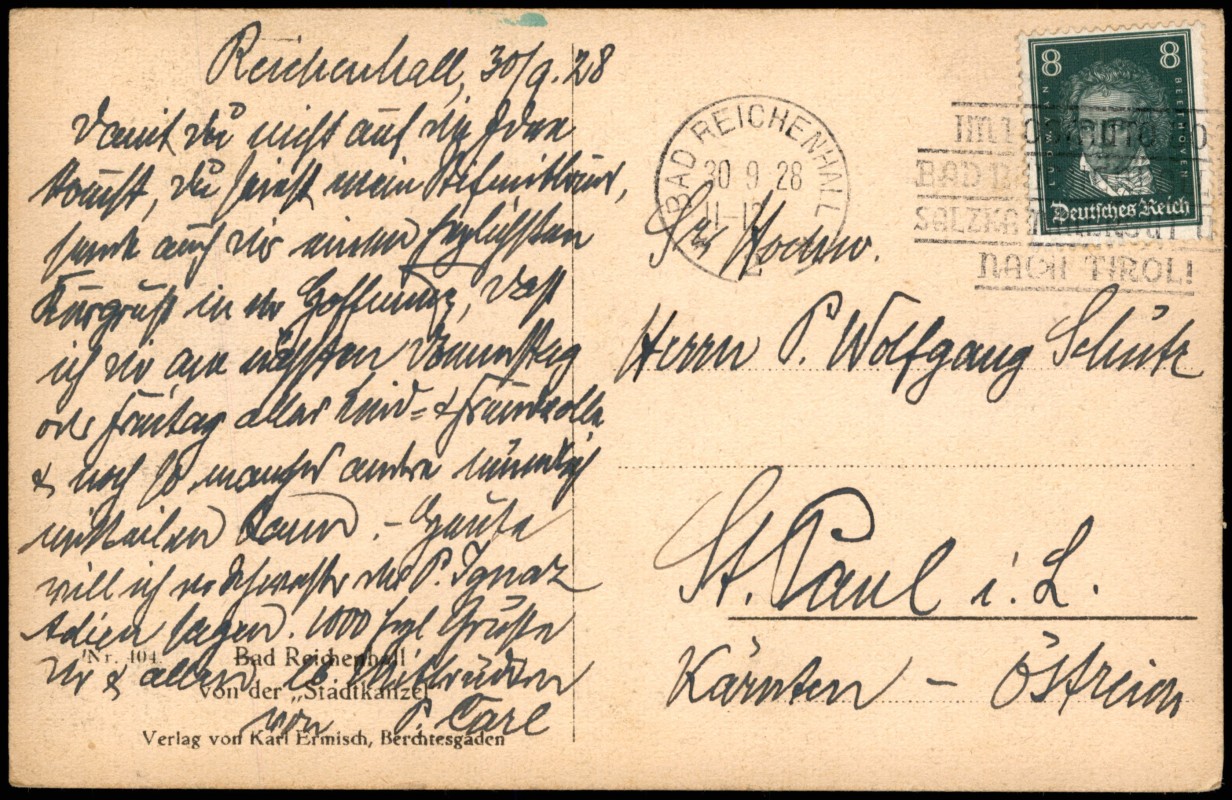 Reichenhall, 30/9.28
Damit du nicht auf die Idee
kommst, du seiest mein
sende auch dir einen herzlichsten
Kurgruß in der Hoffnung, daß
ich dir am nächsten Donnerstag
oder Freitag alles Leid= & Freudvolle
& noch so manches andere mündlich
mitteilen kann. – Heute
will ich der Schwester des P. Ignaz
Adieu sagen. 1000 hzl Grüße
dir & allen lb Mitbrüdern
von P. Carl
Nr. 404. Bad Reichenhall
von der „Städtkanzel"
Verlag von Karl Ermisch, Berchtesgaden
BAD REICHENHALL
30 9 28
11-12
2
IM
BAD
SALZKA
NACH TIROL!
8 8
LUDWIG VAN BEETHOVEN
Deutsches Reich
Sr Hochw.
Herrn P. Wolfgang Schütz
St. Paul i. L.
Kärnten – Östreich